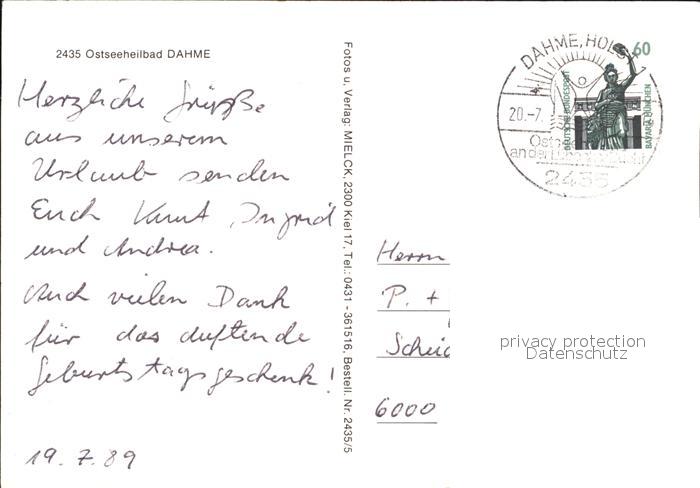 2435 Ostseeheilbad DAHME
Herzliche Grüße
aus unserem
Urlaub senden
Euch Knut, Ingrid
und Andrea.
Auch vielen Dank
für das duftende
Geburtstagsgeschenk!
19.7.89
Fotos u. Verlag: MIELCK, 2300 Kiel 17, Tel.: 0431 - 361516, Bestell. Nr. 2435/5
DAHME, HOLST
20.-7.
an der
2435
60
DEUTSCHE BUNDESPOST
BAVARIA MÜNCHEN
Herrn
P. +
Scheid
6000
privacy protection
Datenschutz